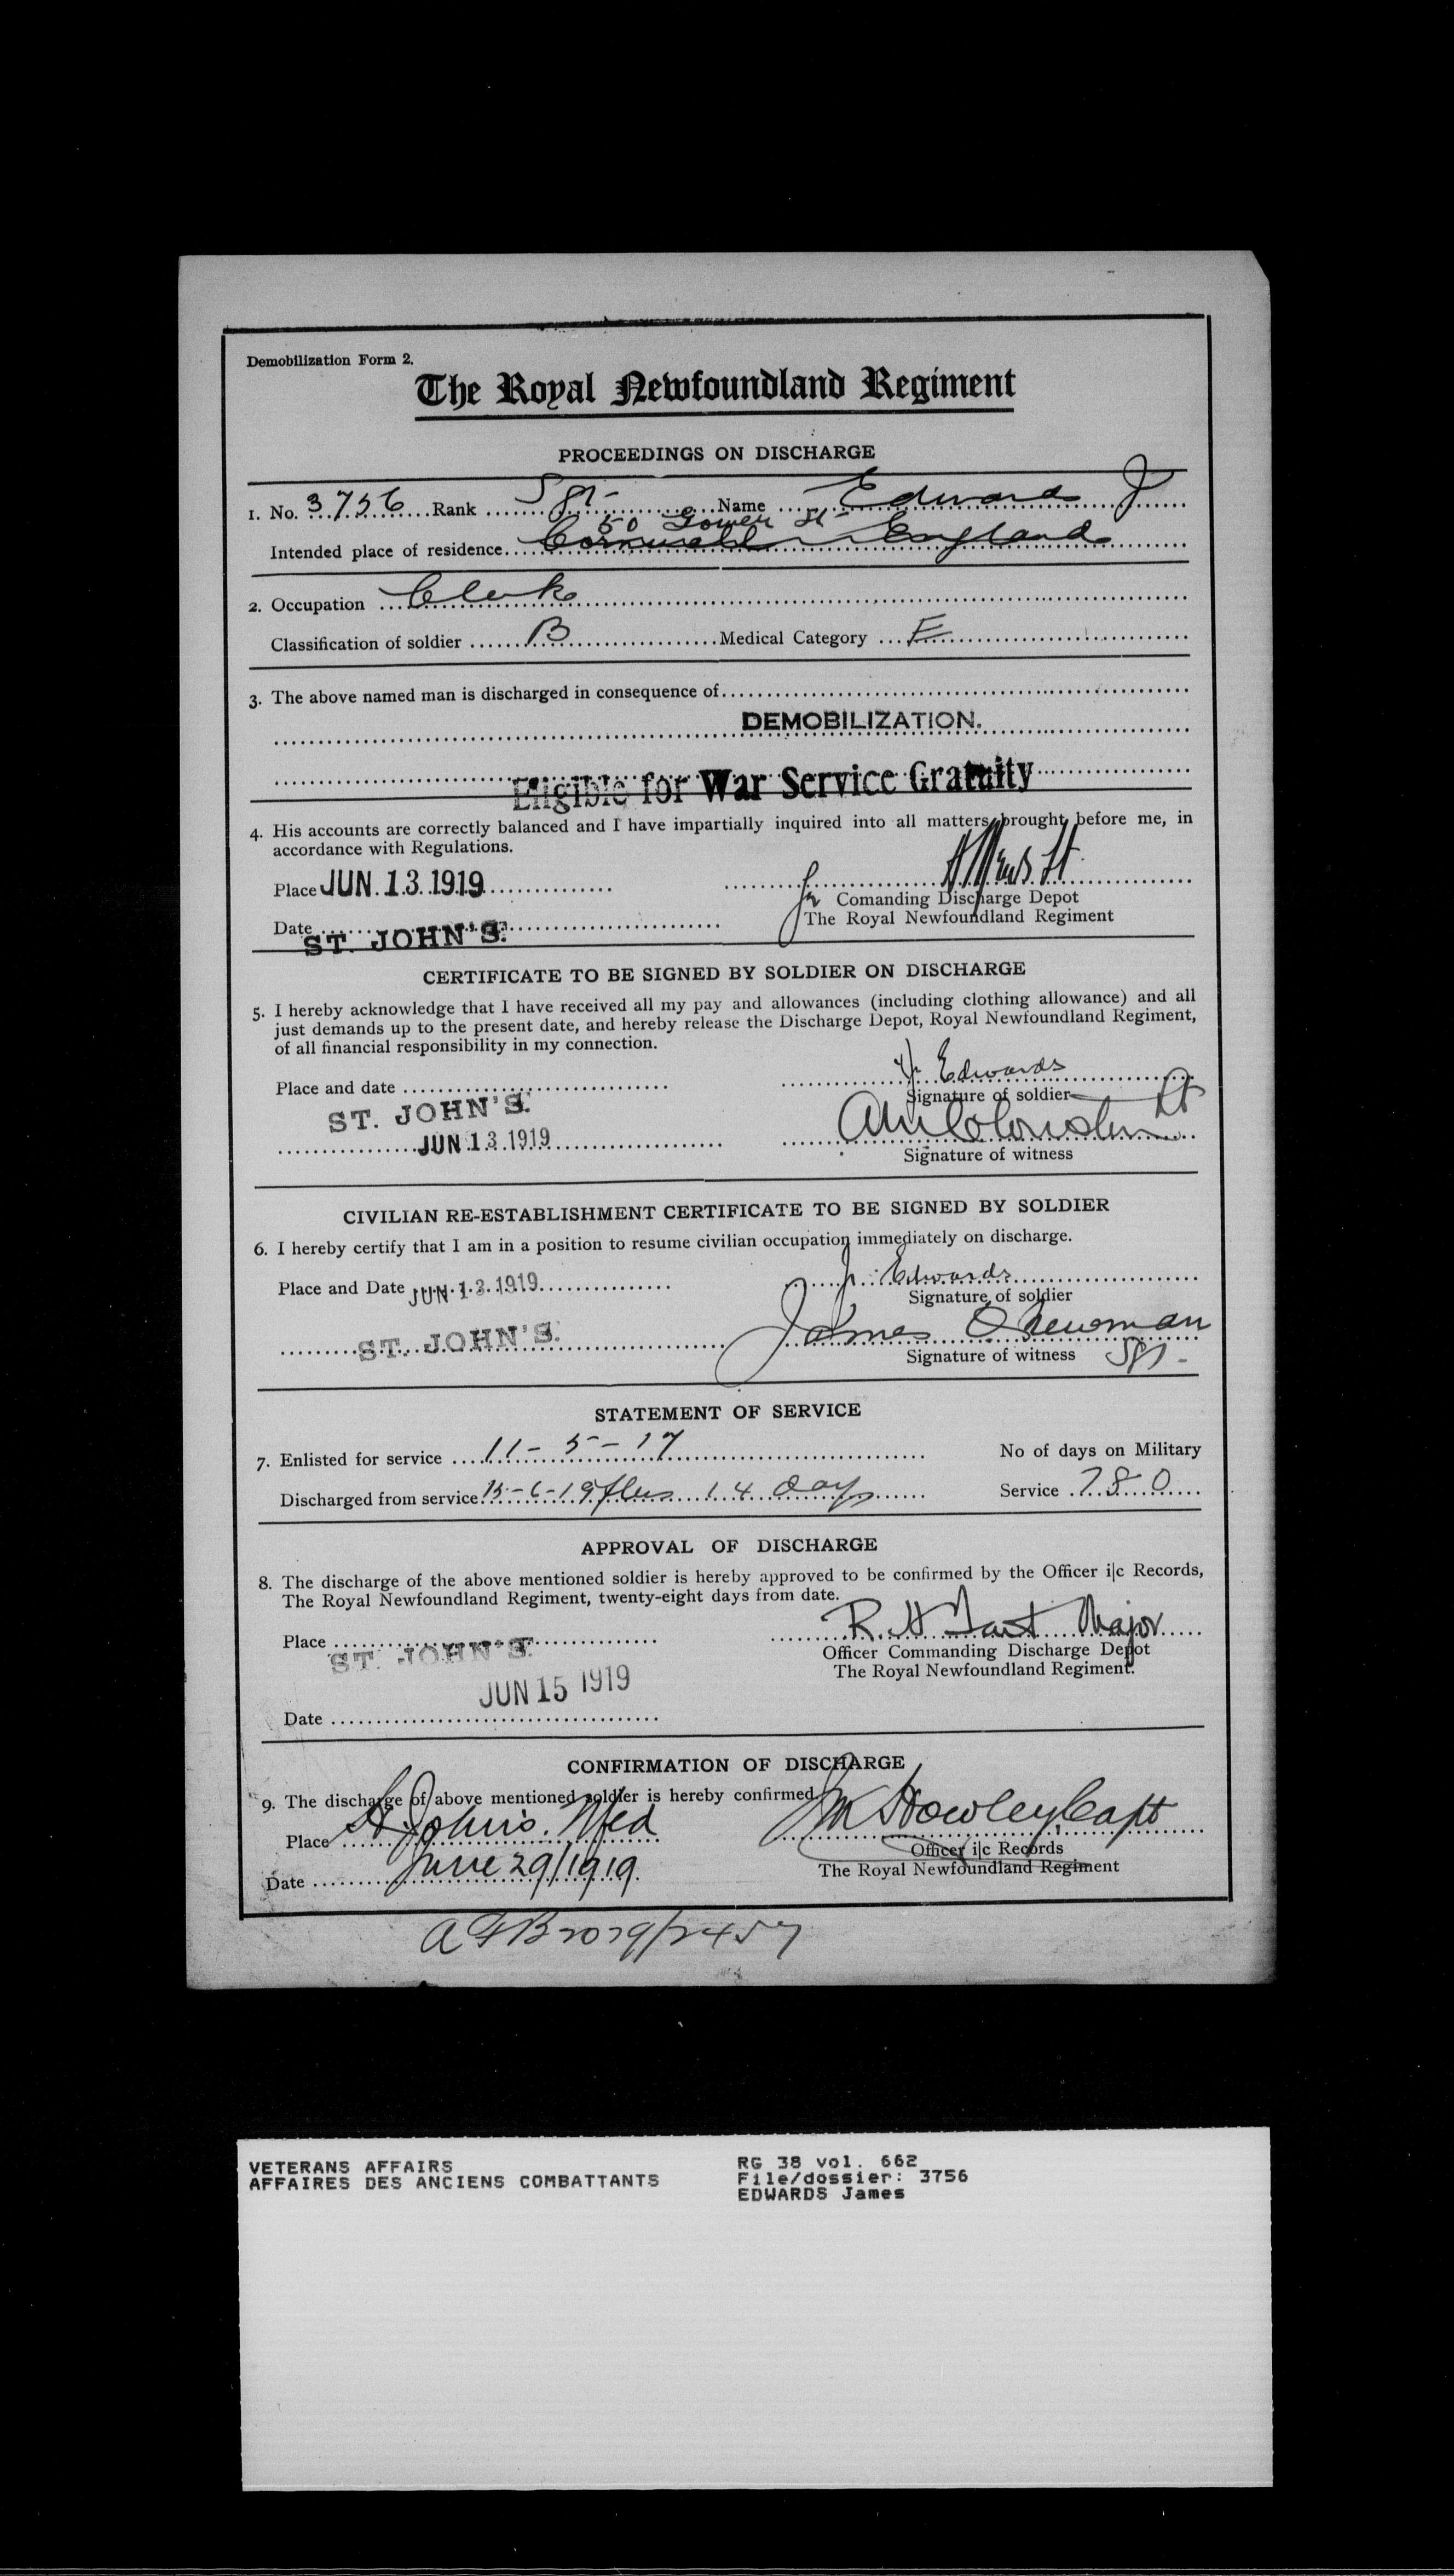 Demobilization Form 2.
The Royal Newfoundland Regiment
PROCEEDINGS ON DISCHARGE
1. No. 3756 Rank Sgt- Name Edwards J
50 Gower St
Intended place of residence Cornwall England
2. Occupation Clerk
Classification of soldier B Medical Category E
3. The above named man is discharged in consequence of
DEMOBILIZATION.
Eligible for War Service Gratuity
4. His accounts are correctly balanced and I have impartially inquired into all matters brought before me, in
accordance with Regulations.
Place JUN 13 1919
for Comanding Discharge Depot
Date ST. JOHN'S. The Royal Newfoundland Regiment
CERTIFICATE TO BE SIGNED BY SOLDIER ON DISCHARGE
5. I hereby acknowledge that I have received all my pay and allowances (including clothing allowance) and all
just demands up to the present date, and hereby release the Discharge Depot, Royal Newfoundland Regiment,
of all financial responsibility in my connection.
Place and date J. Edwards
ST. JOHN'S. Signature of soldier
JUN 13 1919 Lt
Signature of witness
CIVILIAN RE-ESTABLISHMENT CERTIFICATE TO BE SIGNED BY SOLDIER
6. I hereby certify that I am in a position to resume civilian occupation immediately on discharge.
Place and Date JUN 13 1919 J. Edwards
Signature of soldier
ST. JOHN'S. James Newman
Signature of witness Sgt-
STATEMENT OF SERVICE
7. Enlisted for service 11-5-17 No of days on Military
Discharged from service 15-6-19 plus 14 days Service 780
APPROVAL OF DISCHARGE
8. The discharge of the above mentioned soldier is hereby approved to be confirmed by the Officer i|c Records,
The Royal Newfoundland Regiment, twenty-eight days from date.
Place ST. JOHN'S. R. H. Tait Major
Officer Commanding Discharge Depot
The Royal Newfoundland Regiment.
JUN 15 1919
Date
CONFIRMATION OF DISCHARGE
9. The discharge of above mentioned soldier is hereby confirmed
Place St John's. Nfld Howley Capt
Officer i|c Records
Date June 29/1919 The Royal Newfoundland Regiment
AFB 2079/2457
VETERANS AFFAIRS
AFFAIRES DES ANCIENS COMBATTANTS
RG 38 vol. 662
File/dossier: 3756
EDWARDS James